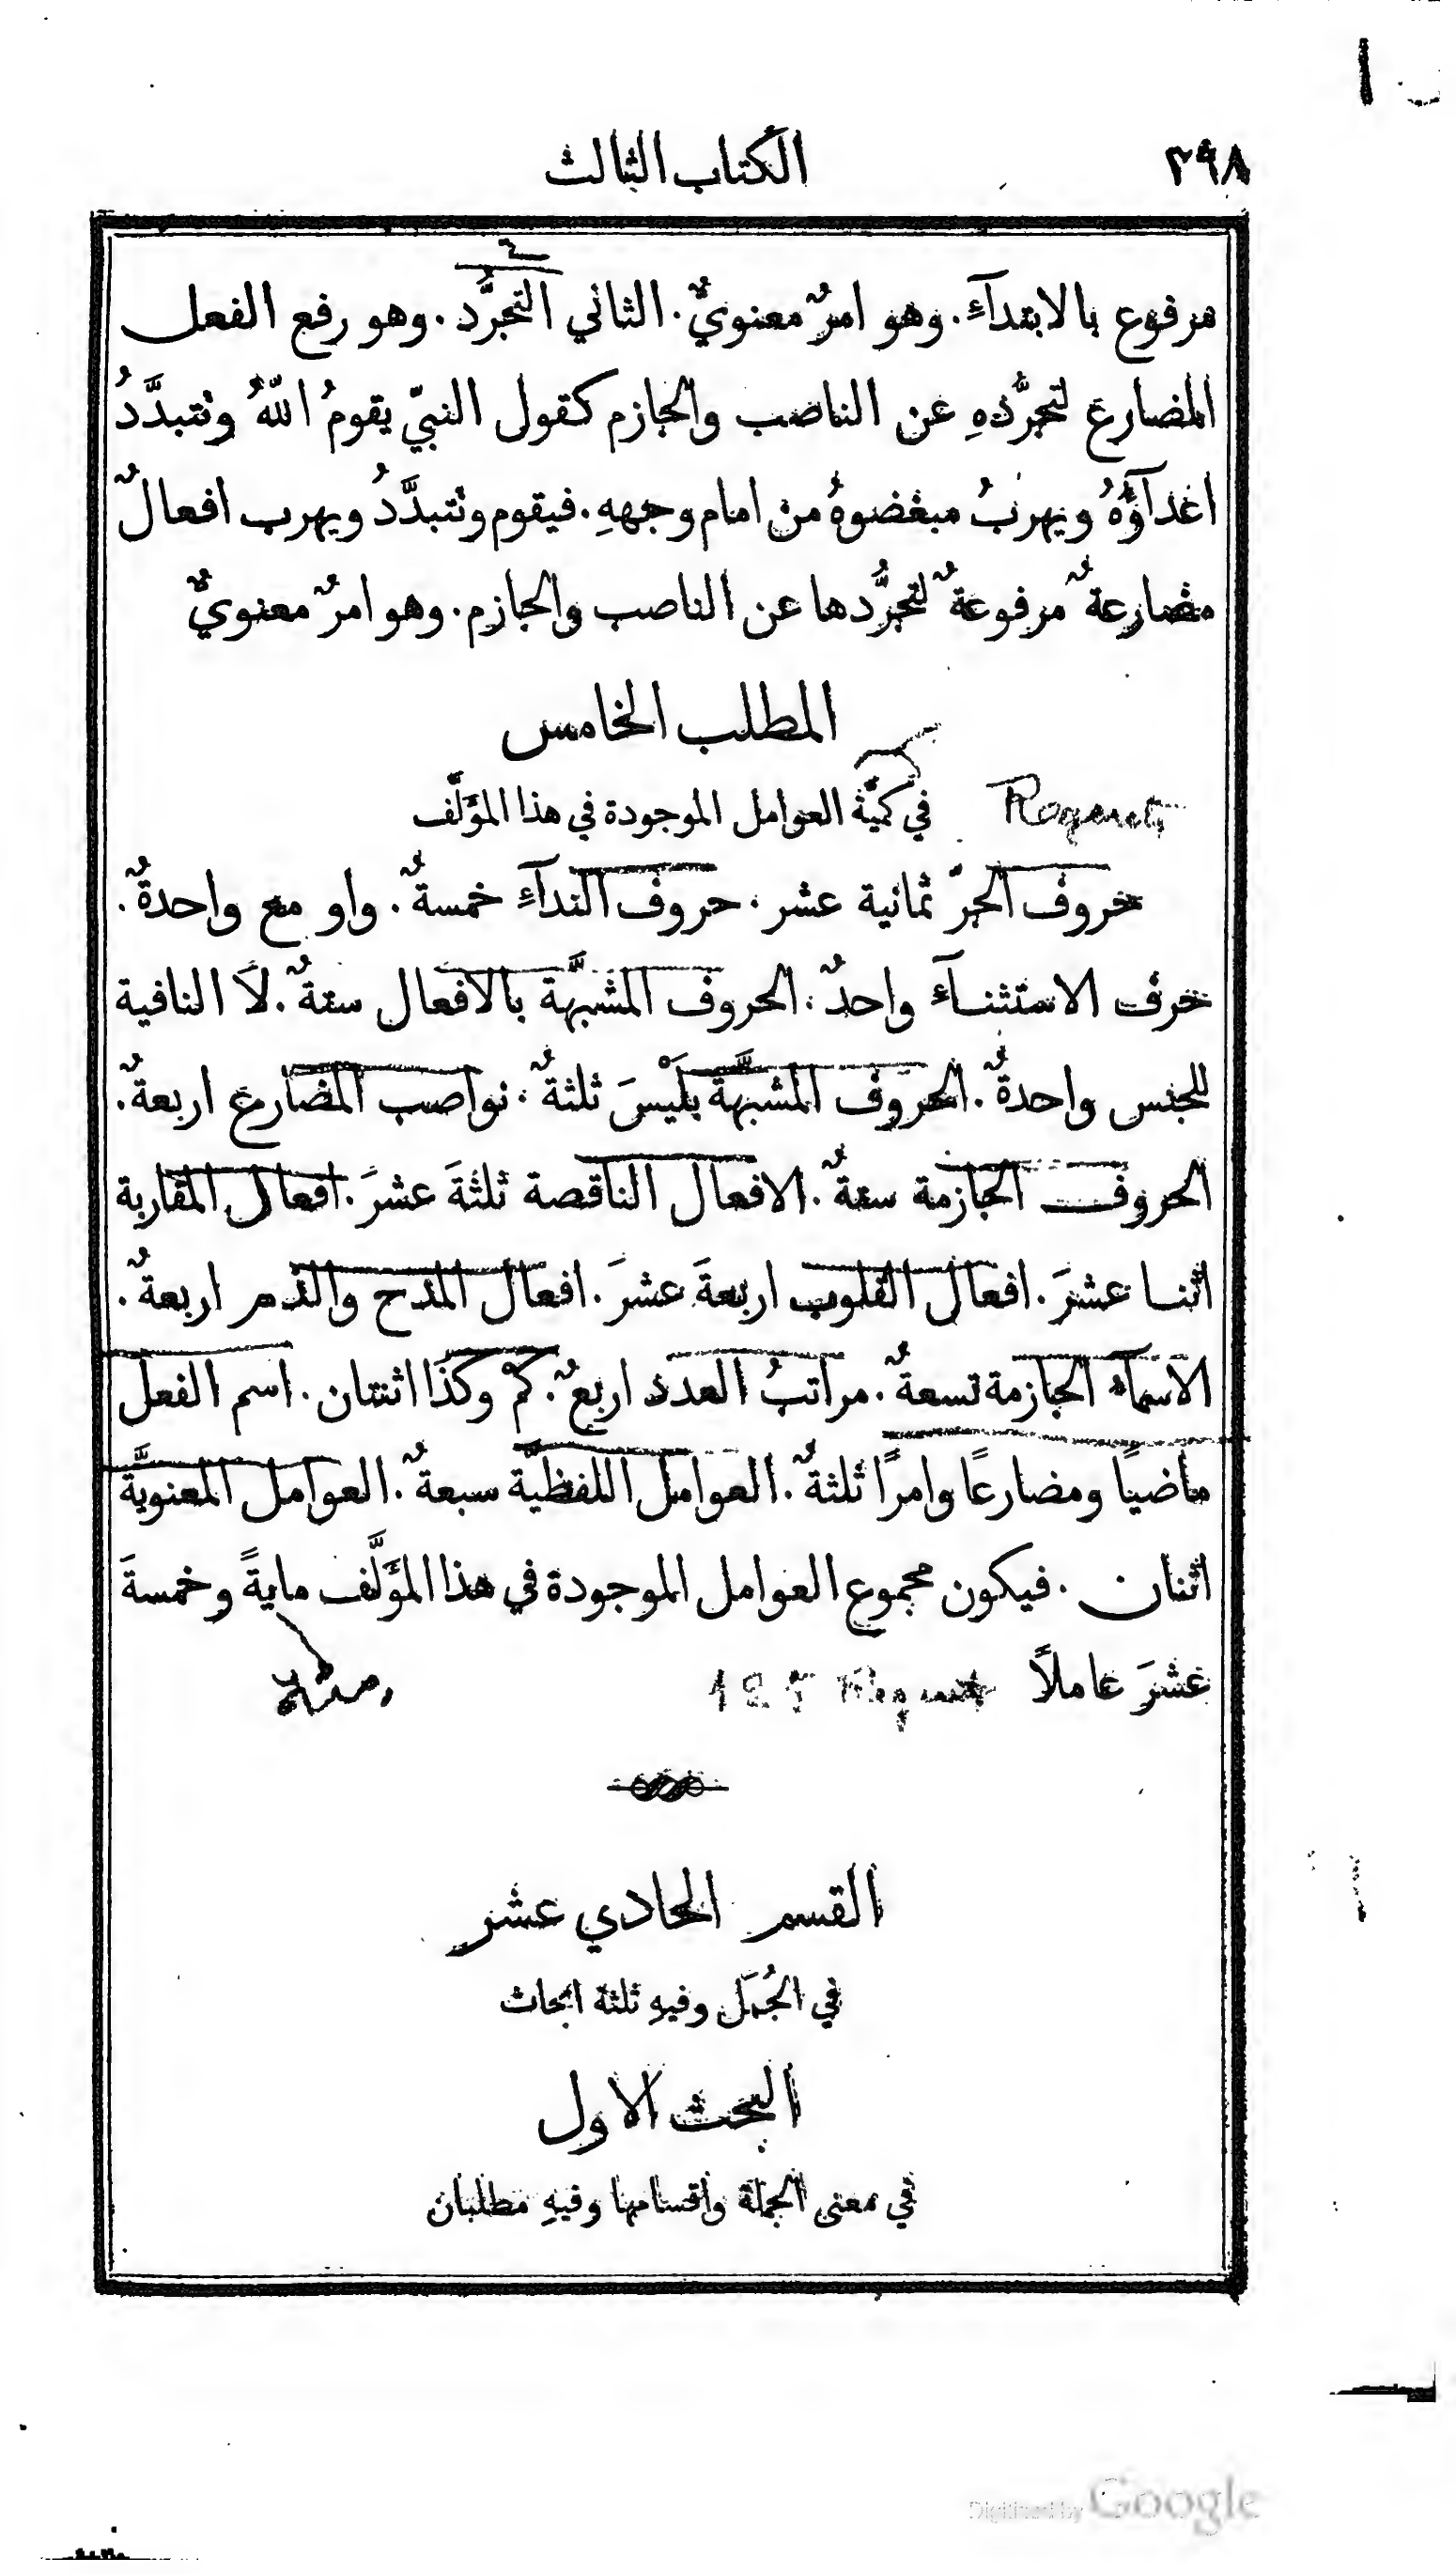 ٣٩٨ الكتاب الثالث
مرفوع بالابتدآءِ. وهو امرٌ معنويٌّ. الثاني التجرُّد. وهو رفع الفعل
المضارع لتجرُّدهِ عن الناصب والجازم كقول النبيّ يقومُ اللّٰهُ وتتبدَّدُ
اعدآؤُهُ ويهربُ مبغضوهُ من امام وجههِ. فيقوم وتتبدَّدُ ويهرب افعالٌ
مضارعةٌ مرفوعةٌ لتجرُّدها عن الناصب والجازم. وهو امرٌ معنويٌّ
المطلب الخامس
في كميَّة العوامل الموجودة في هذا المؤَلَّف
حروف الجرّ ثمانية عشر. حروف الندآءِ خمسةٌ. واو مع واحدةٌ.
حرف الاستثنآء واحدٌ. الحروف المشبَّهة بالافعال ستةٌ. لَا النافية
للجنس واحدةٌ. الحروف المشبَّهة بلَيْسَ ثلثةٌ. نواصب المضارع اربعةٌ.
الحروف الجازمة ستةٌ. الافعال الناقصة ثلثةَ عشرَ. افعال المقاربة
اثنا عشرَ. افعال القلوب اربعةَ عشرَ. افعال المدح والذم اربعةٌ.
الاسمآء الجازمة تسعةٌ. مراتبُ العدد اربعٌ. كمْ وكذا اثنتان. اسم الفعل
ماضيًا ومضارعًا وامرًا ثلثةٌ. العوامل اللفظيَّة سبعةٌ. العوامل المعنويَّة
اثنان. فيكون مجموع العوامل الموجودة في هذا المؤَلَّف مايةً وخمسةَ
عشرَ عاملاً
القسم الحادي عشر
في الجُمَل وفيهِ ثلثة ابحاث
البحث الاول
في معنى الجملة واقسامها وفيهِ مطلبان
Digitized by Google